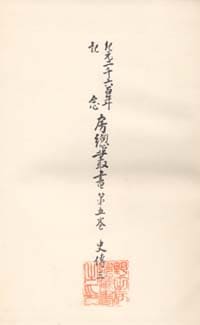 紀元二千六百年
記念
房總叢書 第五巻 史傳三